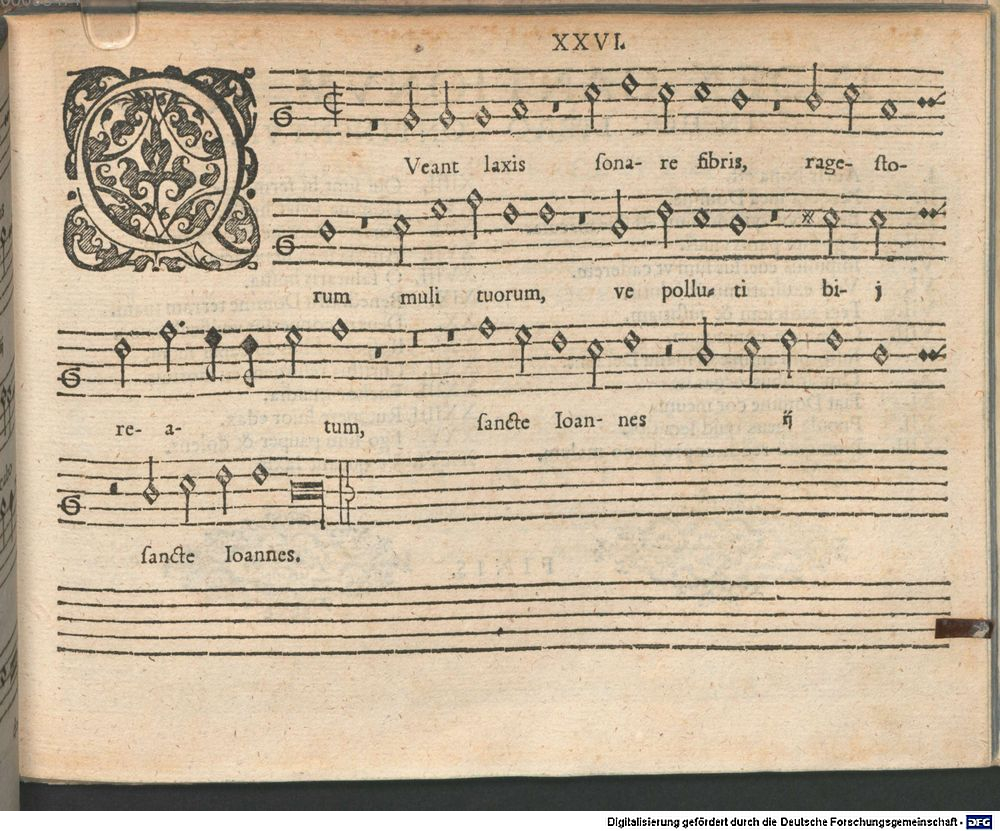 XXVI.
QVeant laxis sona- re fibris, rage- sto-
rum muli tuorum, ve pollu- ti bi- j
re- a- tum, sancte Ioan- nes ij
sancte Ioannes.
Digitalisierung gefördert durch die Deutsche Forschungsgemeinschaft - DFG